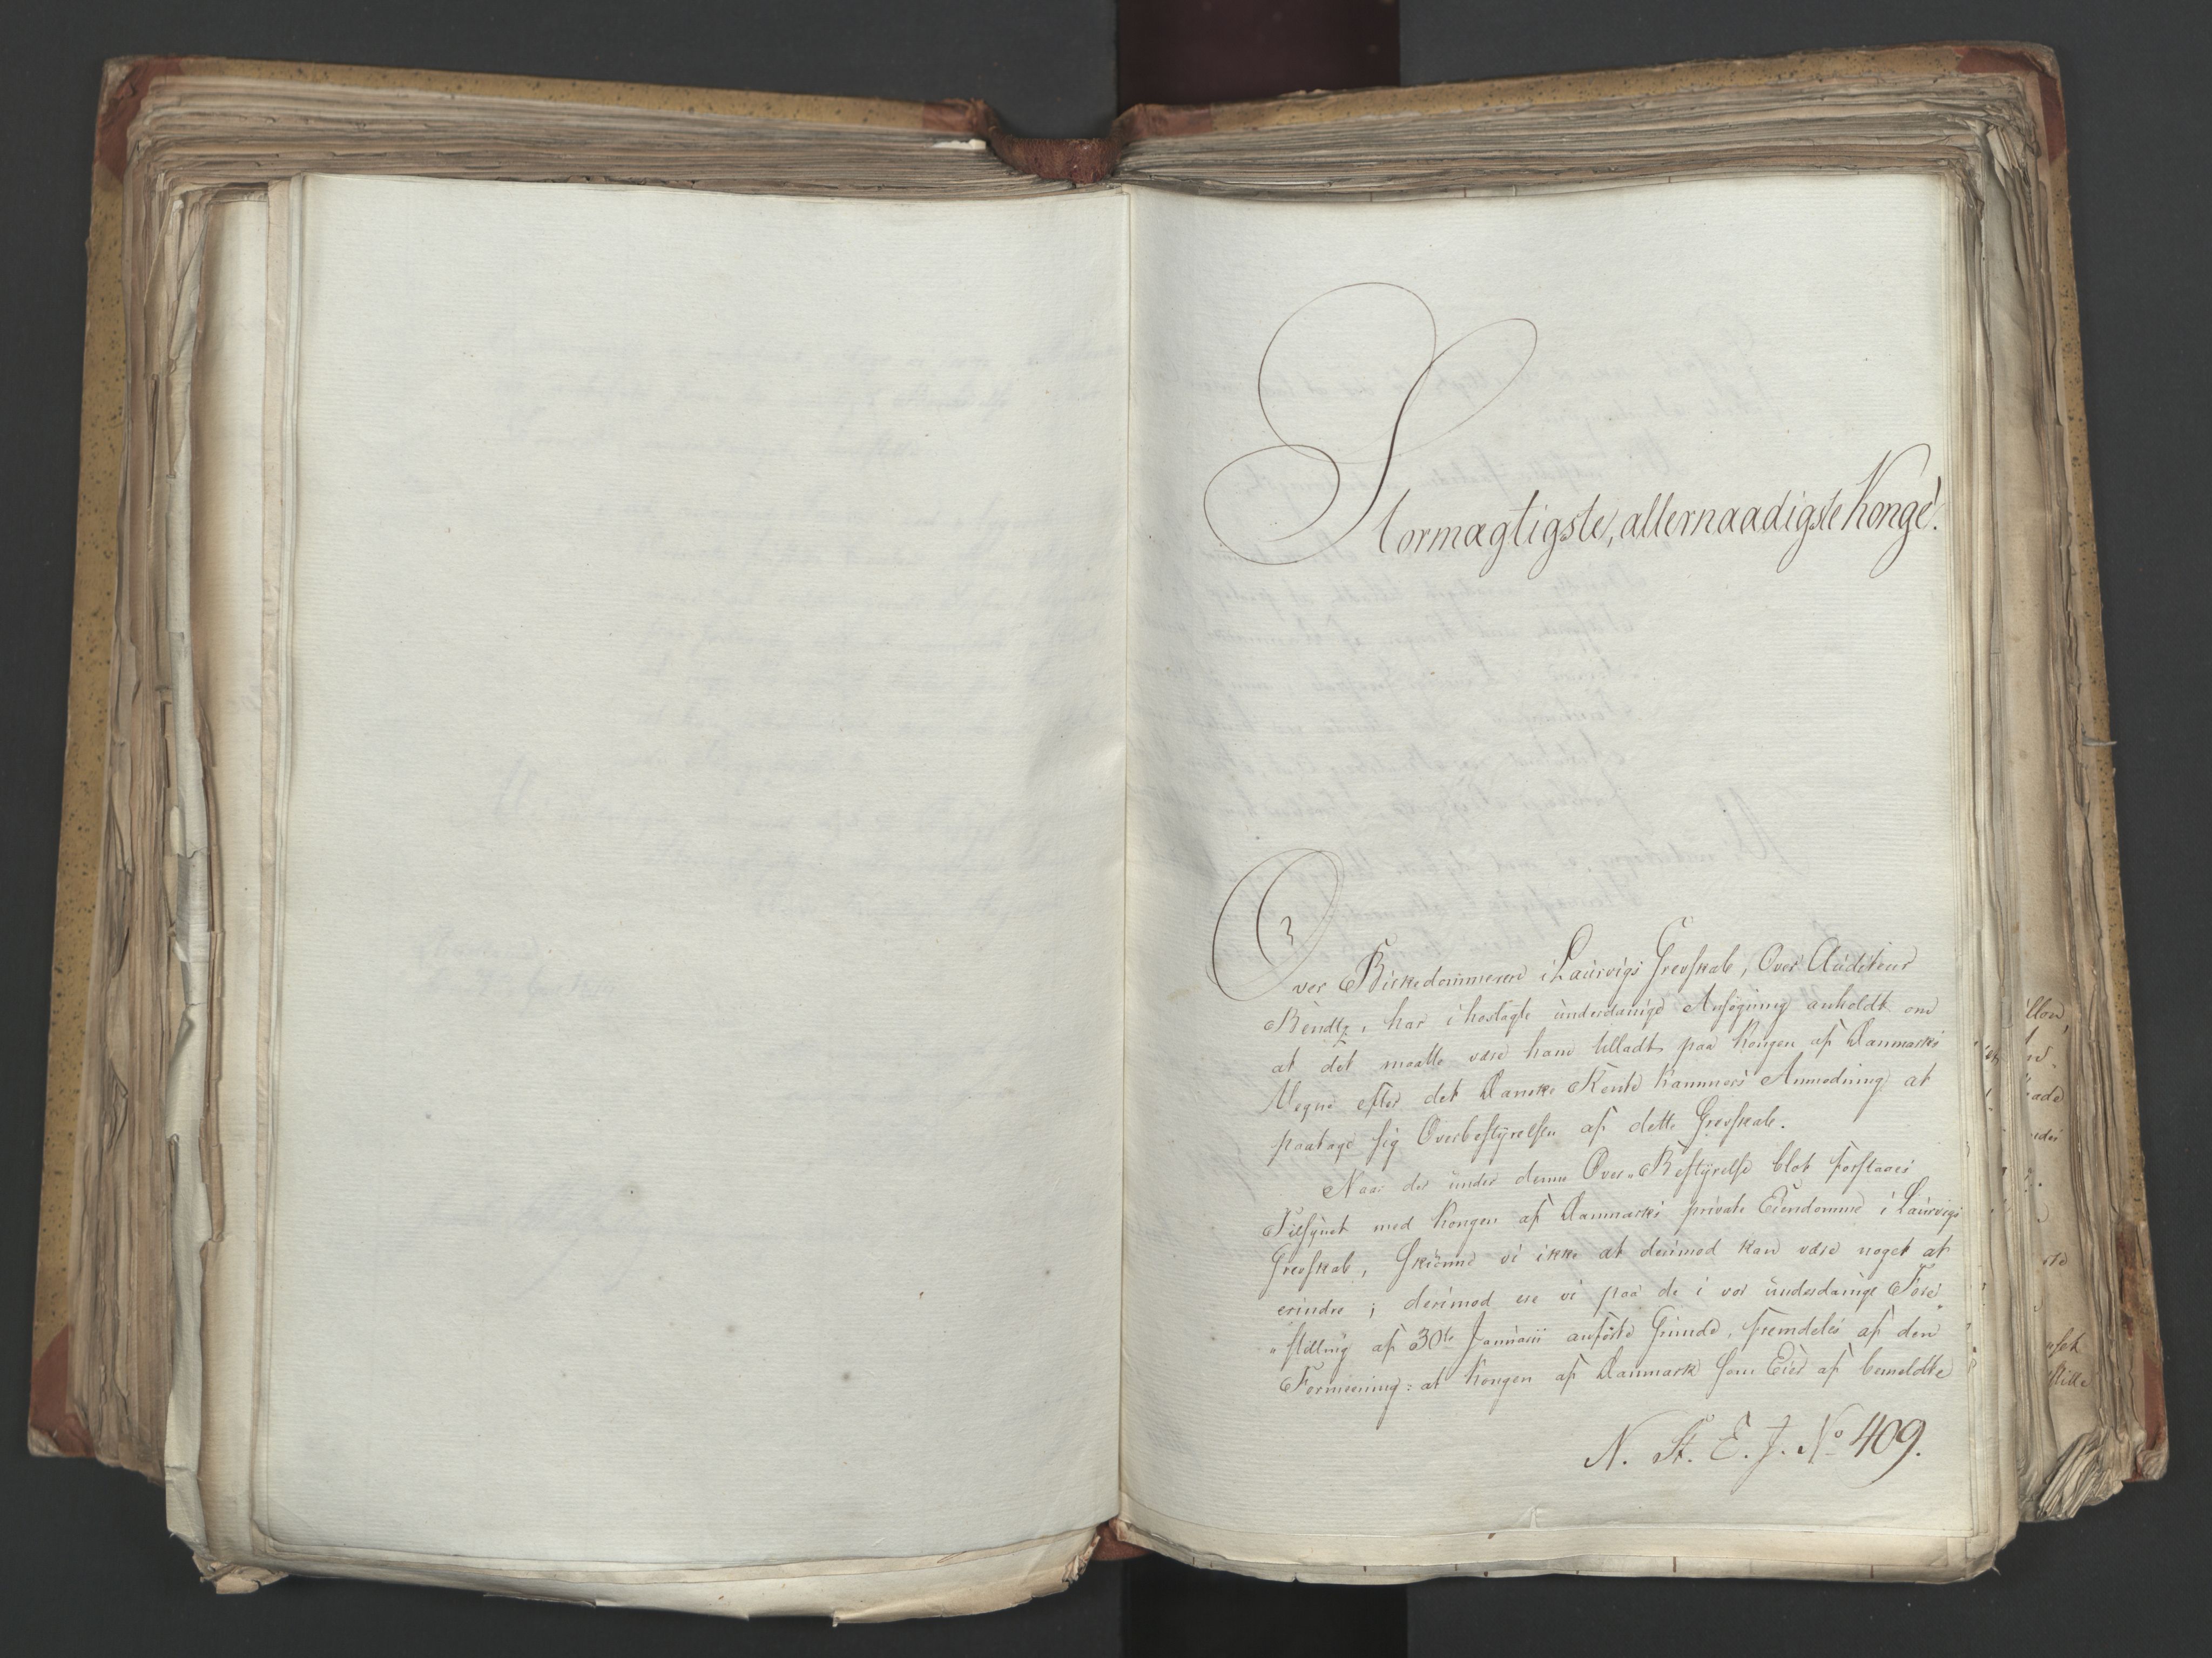 Stormægtigste, allernaadigste Konge!
Over Birkedommeren i Laurvigs Grevskab, Over Auditeur
Bendtz, har i hoslagte underdanige Ansøgning anholdt om
at det maatte være ham tilladt paa Kongen af Danmarks
Vegne efter det Danske Rente Kammers Anmodning at
paatage sig Overbestyrelsen af dette Grevskab.
Naar der under denne Over-Bestyrelse blot forstaaes
Tilsynet med Kongen af Danmarks private Eiendomme i Laurvigs
Grevskab, skiønne vi ikke at derimod kan være noget at
erindre; derimod ere vi paa de i vor underdanige Fore-
stilling af 30te Januarii anførte Grunde, fremdeles af den
Formening: at Kongen af Danmark som Eier af bemeldte
N. St. E. J. No 409.